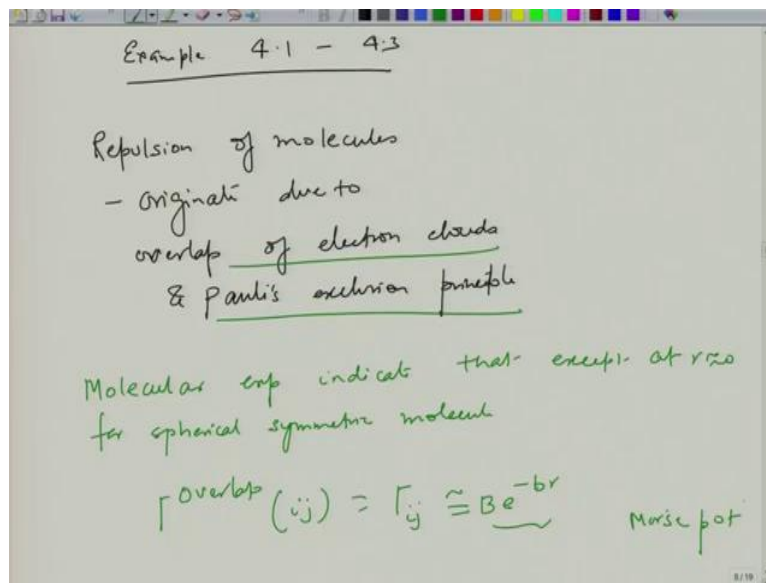 Example 4.1 - 4.3
Repulsion of molecules
- originate due to
overlap of electron clouds
& Pauli's exclusion principle
Molecular exp indicate that except at r≈0
for spherical symmetric molecul
Γ^overlap (ij) = Γij ≅ Be^-br
Morse pot
8/19